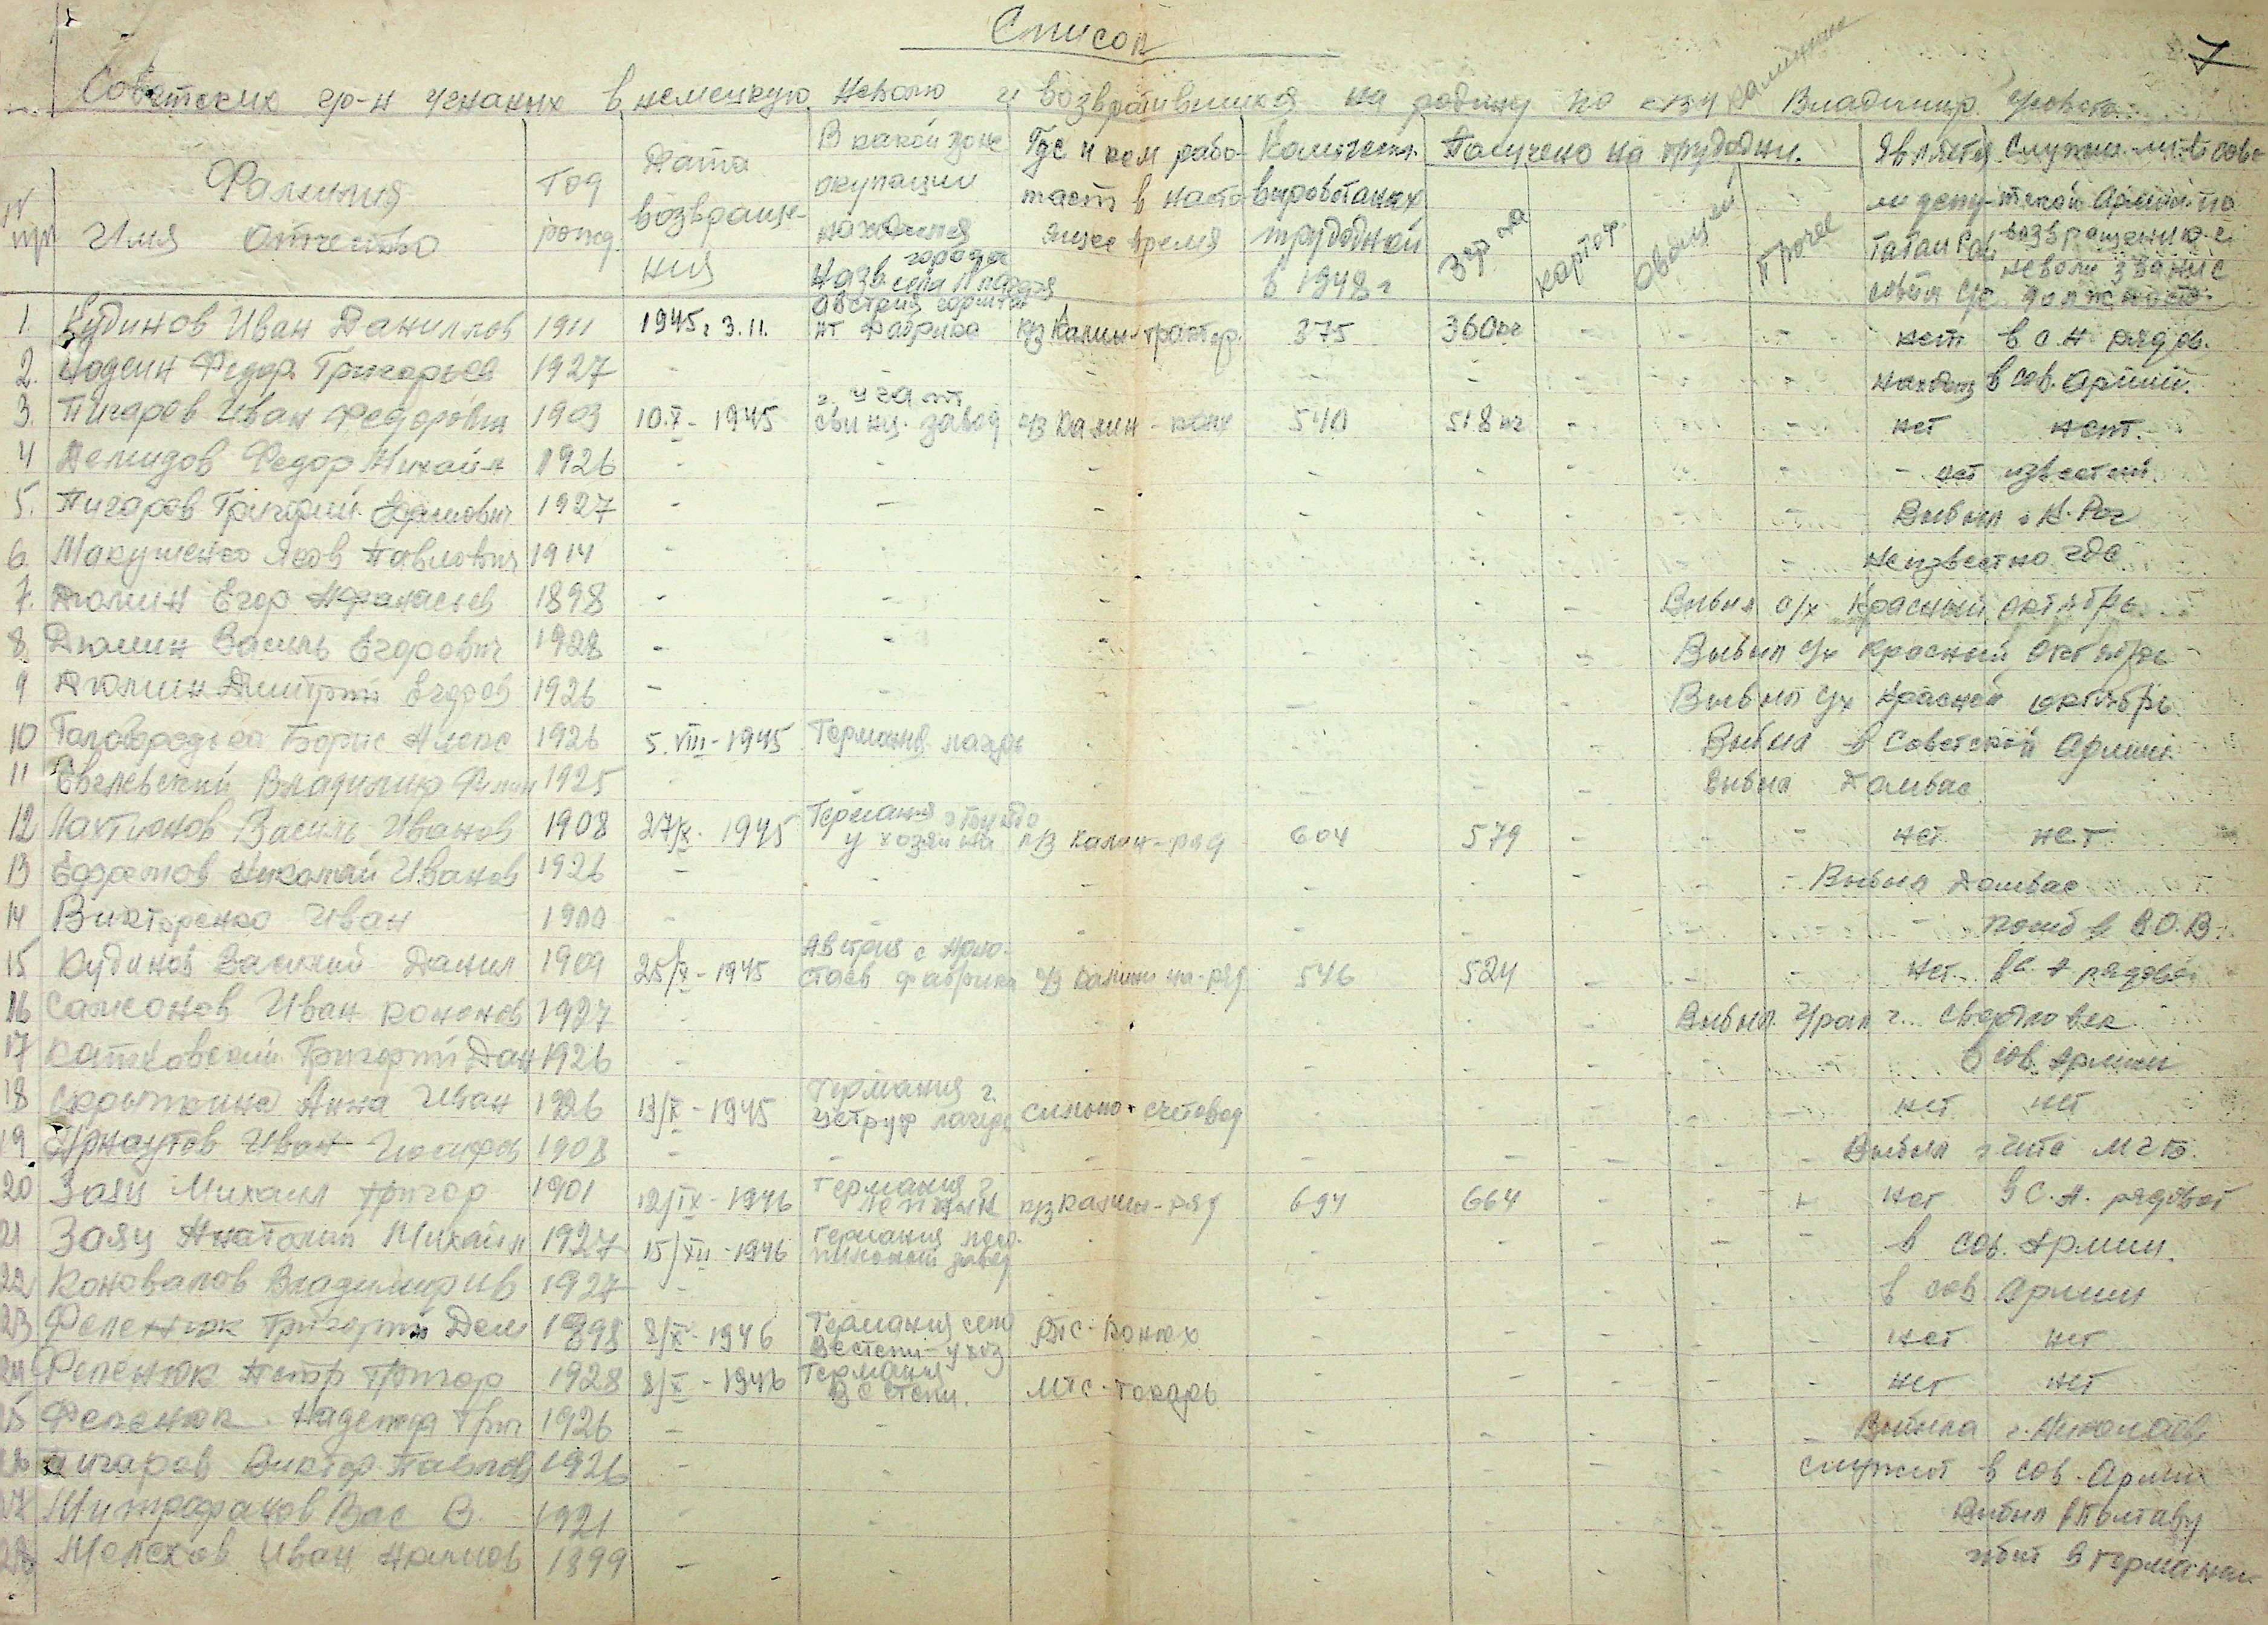 Список
7
Советских гр-н угнаных в немецкую неволю и возвратившихся на родину по к-зу Калинина Владимир. уровста
№ п/п Фамилия Имя Отчество
Год рожд.
Дата возвращения
В какой зоне окупации находился назв. города села
Где и кем работает в настоящее время
Количеств. выработаных трудодней в 1948 г
Получено на трудодни.
Зерна
картоф.
овощей
Прочее
Является ли депутатам
Служил ли в советской Армии по возвращению с неволи звание должность
1. Кудинов Иван Даниллов 1911 1945 г 3.11. Австрия фабрика к/з Калин-трактор. 375 360кг - - - нет в с.А рядов.
2. Федор Григорьев 1927 - - - - в сов. Армии.
3. Пигарев Иван Федорович 1903 10.X - 1945 свинц. завод к/з Калин - конх 540 518кг - - нет нет.
4 Демидов Федор Михайл 1926 - - - - - - нет известий.
5. Пигарев Григорий Ефимович 1927 - - - - - Выбыл г К. Рог
6 Макушенко Яков Павлович 1914 - - - - - неизвестно где
7. Дюмин Егор Афанасьев 1898 - - - - - Выбыл с/х Красный октябрь
8. Дюмин Василь Егорович 1928 - - - - Выбыл с/х Красный Октябрь
9 Дюмин Дмитрий Егоров 1926 - - - - Выбыл с/х Красной октябрь
10 Голобородька Борис Алекс 1926 5.VIII - 1945 Германия лагерь - - - Выбыл в Советской Армии
11 Владимир Филип 1925 - - - - Выбыл Донбас
12 Лахтионов Василь Иванов 1908 27/X. 1945 Германия у хозяина к/з Калин-ряд 604 579 - - нет нет
13 Ефремов Николай Иванов 1926 - - - - - Выбыл Донбас
14 Викторенко Иван 1900 - - - - - погиб в В.О.В.
15 Кудинов Василий Данил 1909 25/X - 1945 Австрия с фабрика к/з Калинина-ряд 546 524 - - - нет в С. А рядовой
16 Самсонов Иван Кононов 1927 - - - - Выбыл. Урал г. Свердловск
17 Григорий Дан 1926 - - - - в сов. Армии
18 Скрыпкина Анна Иван 1926 13/X - 1945 Германия г. лагерь счетовод - - - нет нет
19 Арнаутов Иван Иосифов 1908 - - - - Выбыл г Чита
20 Заяц Михаил Григор 1901 12/IX - 1946 Германия г к/з Калин-ряд 694 664 - - + нет в С.А. рядовой
21 Заяц Анатолий Михайл 1927 15/XII - 1946 Германия лесопильный завод - - - в сов. Армии.
22 Коновалов Владимир Ив 1927 - - - в сов Армии
23 Феленюк Григорий Дем 1898 8/X - 1946 Германия село Вестепи-у хоз РТС-Конюх - - - - нет нет
24 Феленюк Петр Григор 1928 8/X - 1946 Германия Вестепи. МТС-токарь - - - - нет нет
25 Феленюк. Надежда Григ 1926 - - - - Выбыла г. Николаев
26 Пигарев Виктор Павлов 1926 - - - - служит в сов. Армии
27 Митрофанов Вас В. 1921 - - - - Выбыл в Полтаву
28 Мелехов Иван Наумов 1899 - - - - убит в Германии